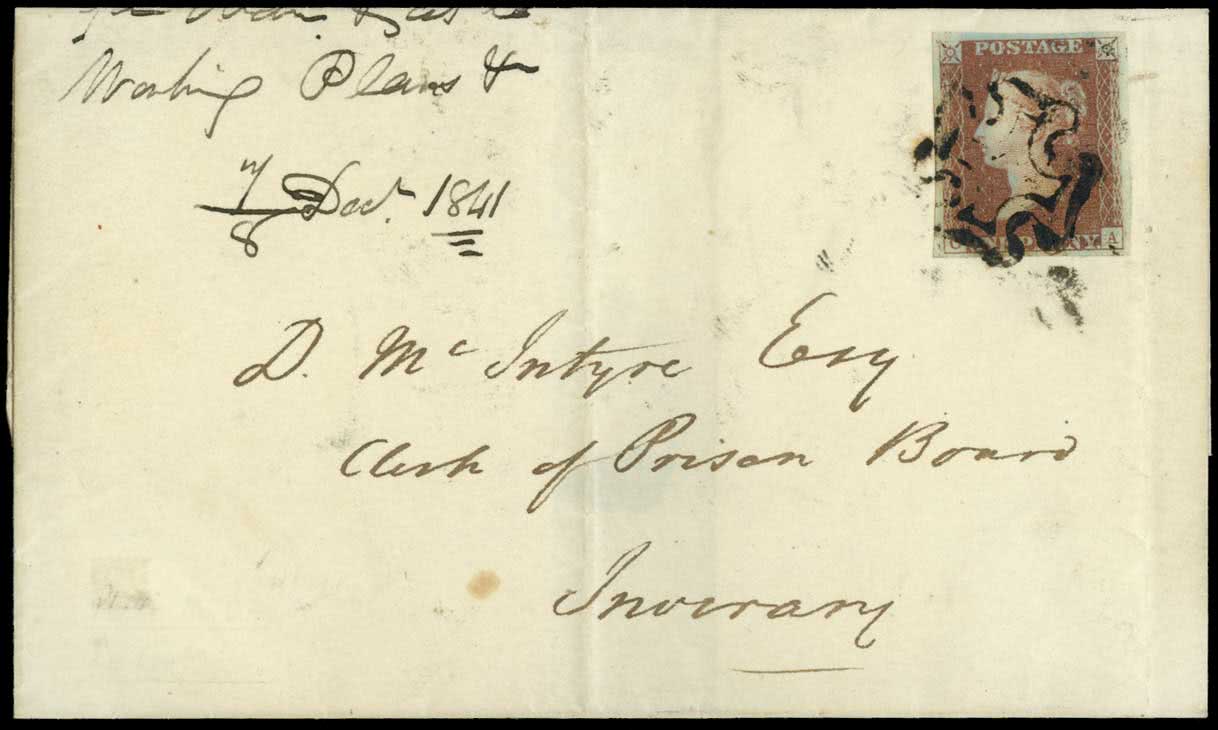 Working Plans &
7/8 Decr. 1841
POSTAGE
ONE PENNY A
D. Mc Intyre Esq
Clerk of Prison Board
Inverary